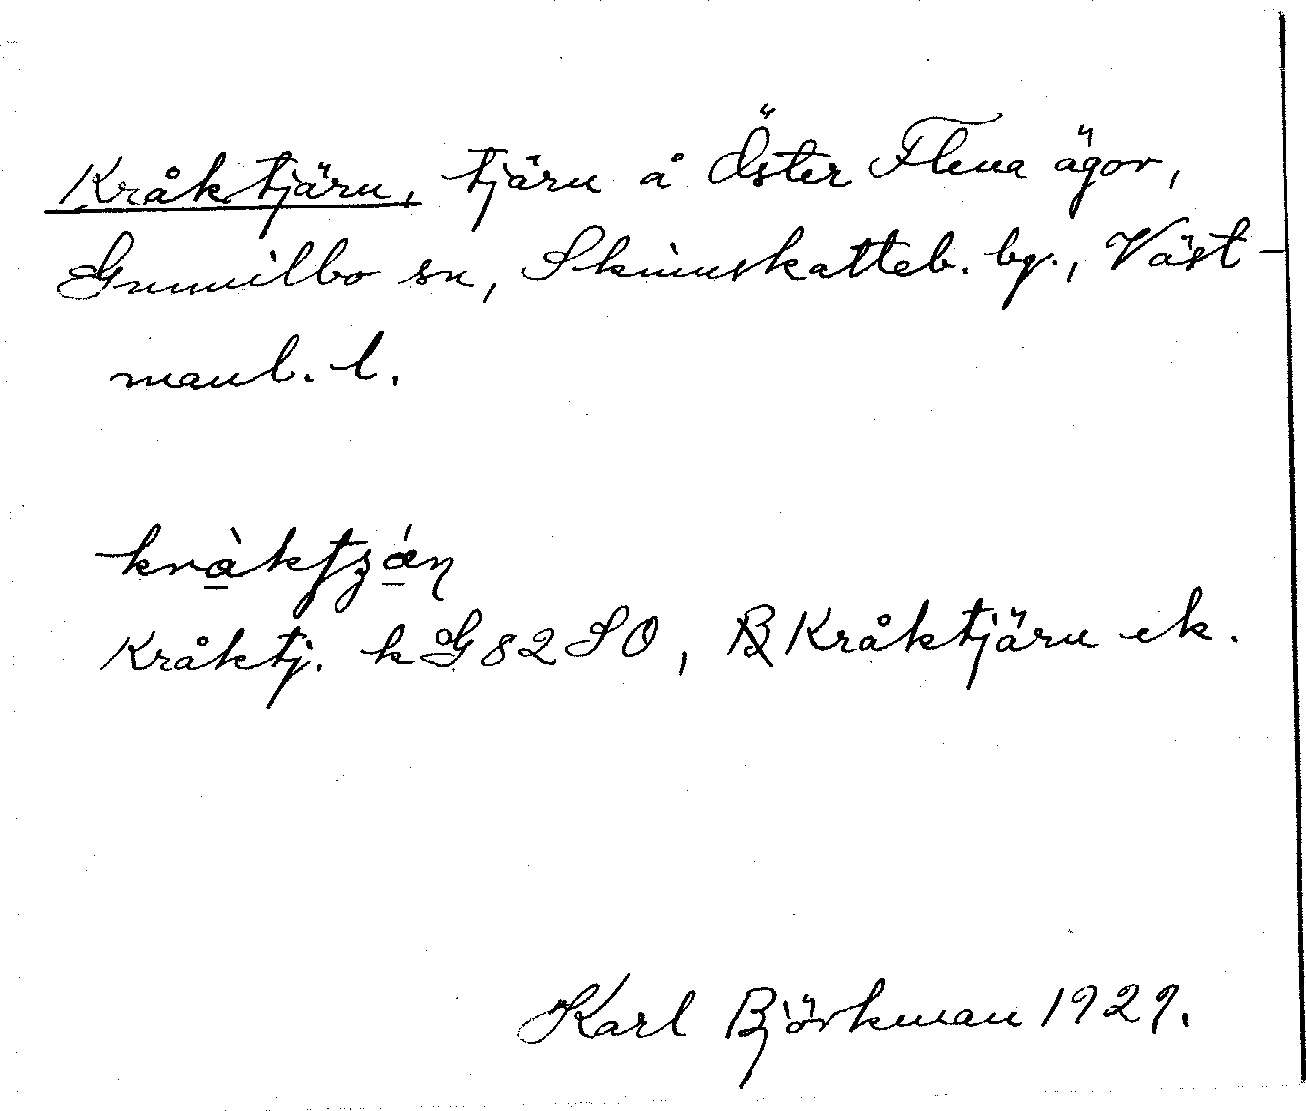 Kråktjärn, tjärn å Öster Flena ägor,
Gunnilbo sn, Skinnskatteb. bg., Väst-
manl. l.
Kråktj. k G 82 SO, Kråktjärn ek.
Karl Björkman 1929.